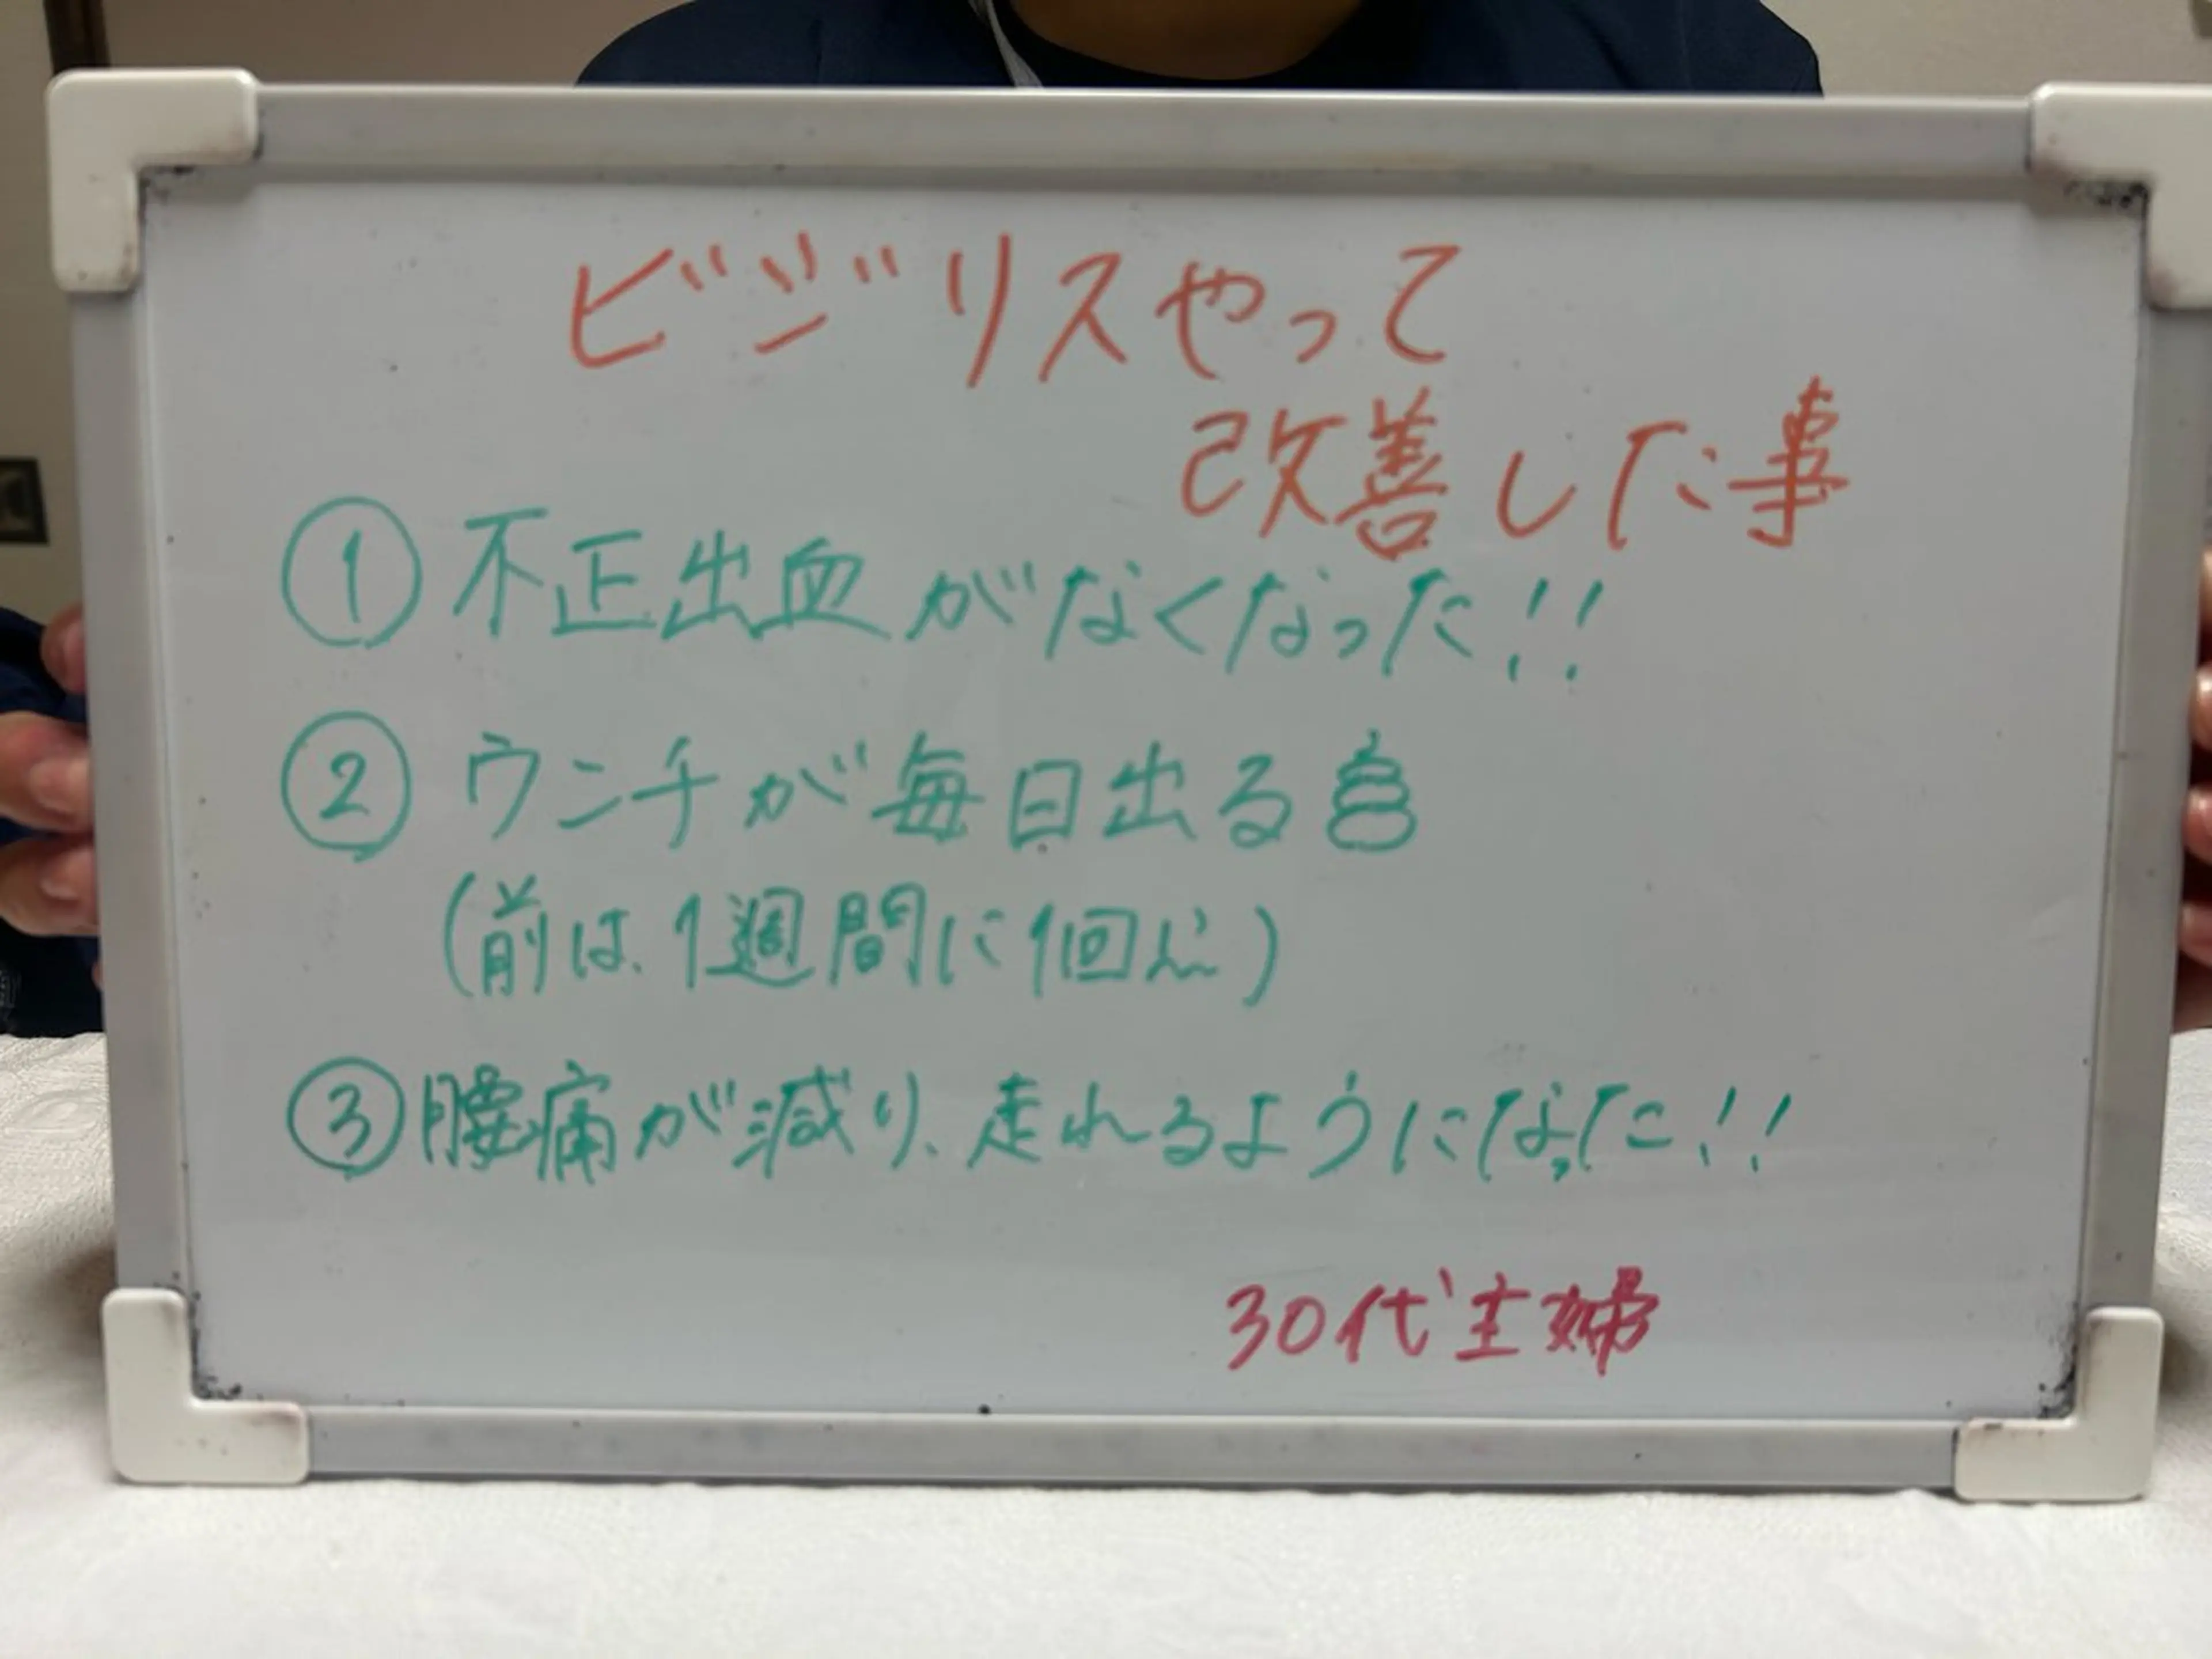 ビジリスやって
改善した事
① 不正出血がなくなった!!
② ウンチが毎日出る
(前は、1週間に1回)
③ 腰痛が減り、走れるようになった!!
30代主婦